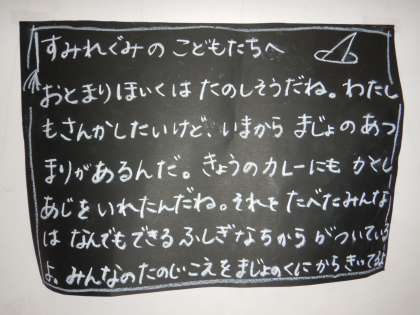 すみれぐみの こどもたちへ
おとまりほいくは たのしそうだね。わたし
もさんかしたいけど、いまから まじょの あつ
まりがあるんだ。きょうのカレーにも かくし
あじをいれたんだね。それを たべたみんな
は なんでもできる ふしぎなちから がついている
よ。みんなのたのしいこえを まじょのくにから きいてるよ